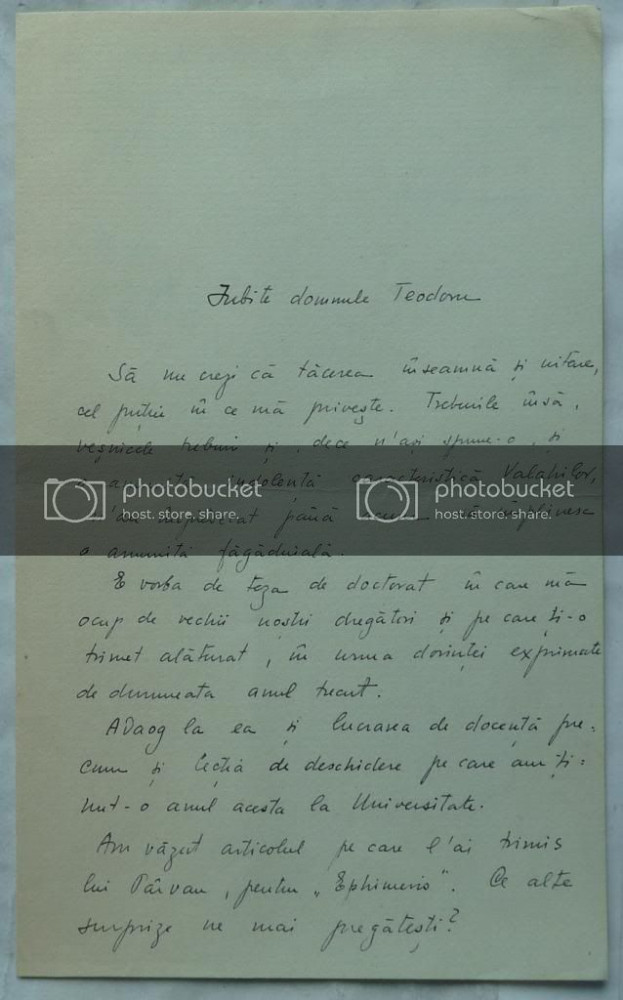 Iubite domnule Teodoru
Să nu crezi că tăcerea înseamnă și uitare,
cel puțin în ce mă privește. Treburile însă,
veșnicele treburi și, dece n'ași spune-o, și
indolență caracteristică Valahilor,
împiedecat până acum să'mplinesc
o anumită făgăduială.
E vorba de teza de doctorat în care mă
ocup de vechii noștri dregători și pe care ți-o
trimet alăturat, în urma dorinței exprimate
de dumneata anul trecut.
ADaog la ea și lucrarea de docență pre=
cum și lecția de deschidere pe care am ți=
nut-o anul acesta la Universitate.
Am văzut articolul pe care l'ai trimis
lui Pârvan, pentru „Ephimeris". Ce alte
surprize ne mai pregătești?
photobucket
host. store. share.
photobucket
host. store. share.